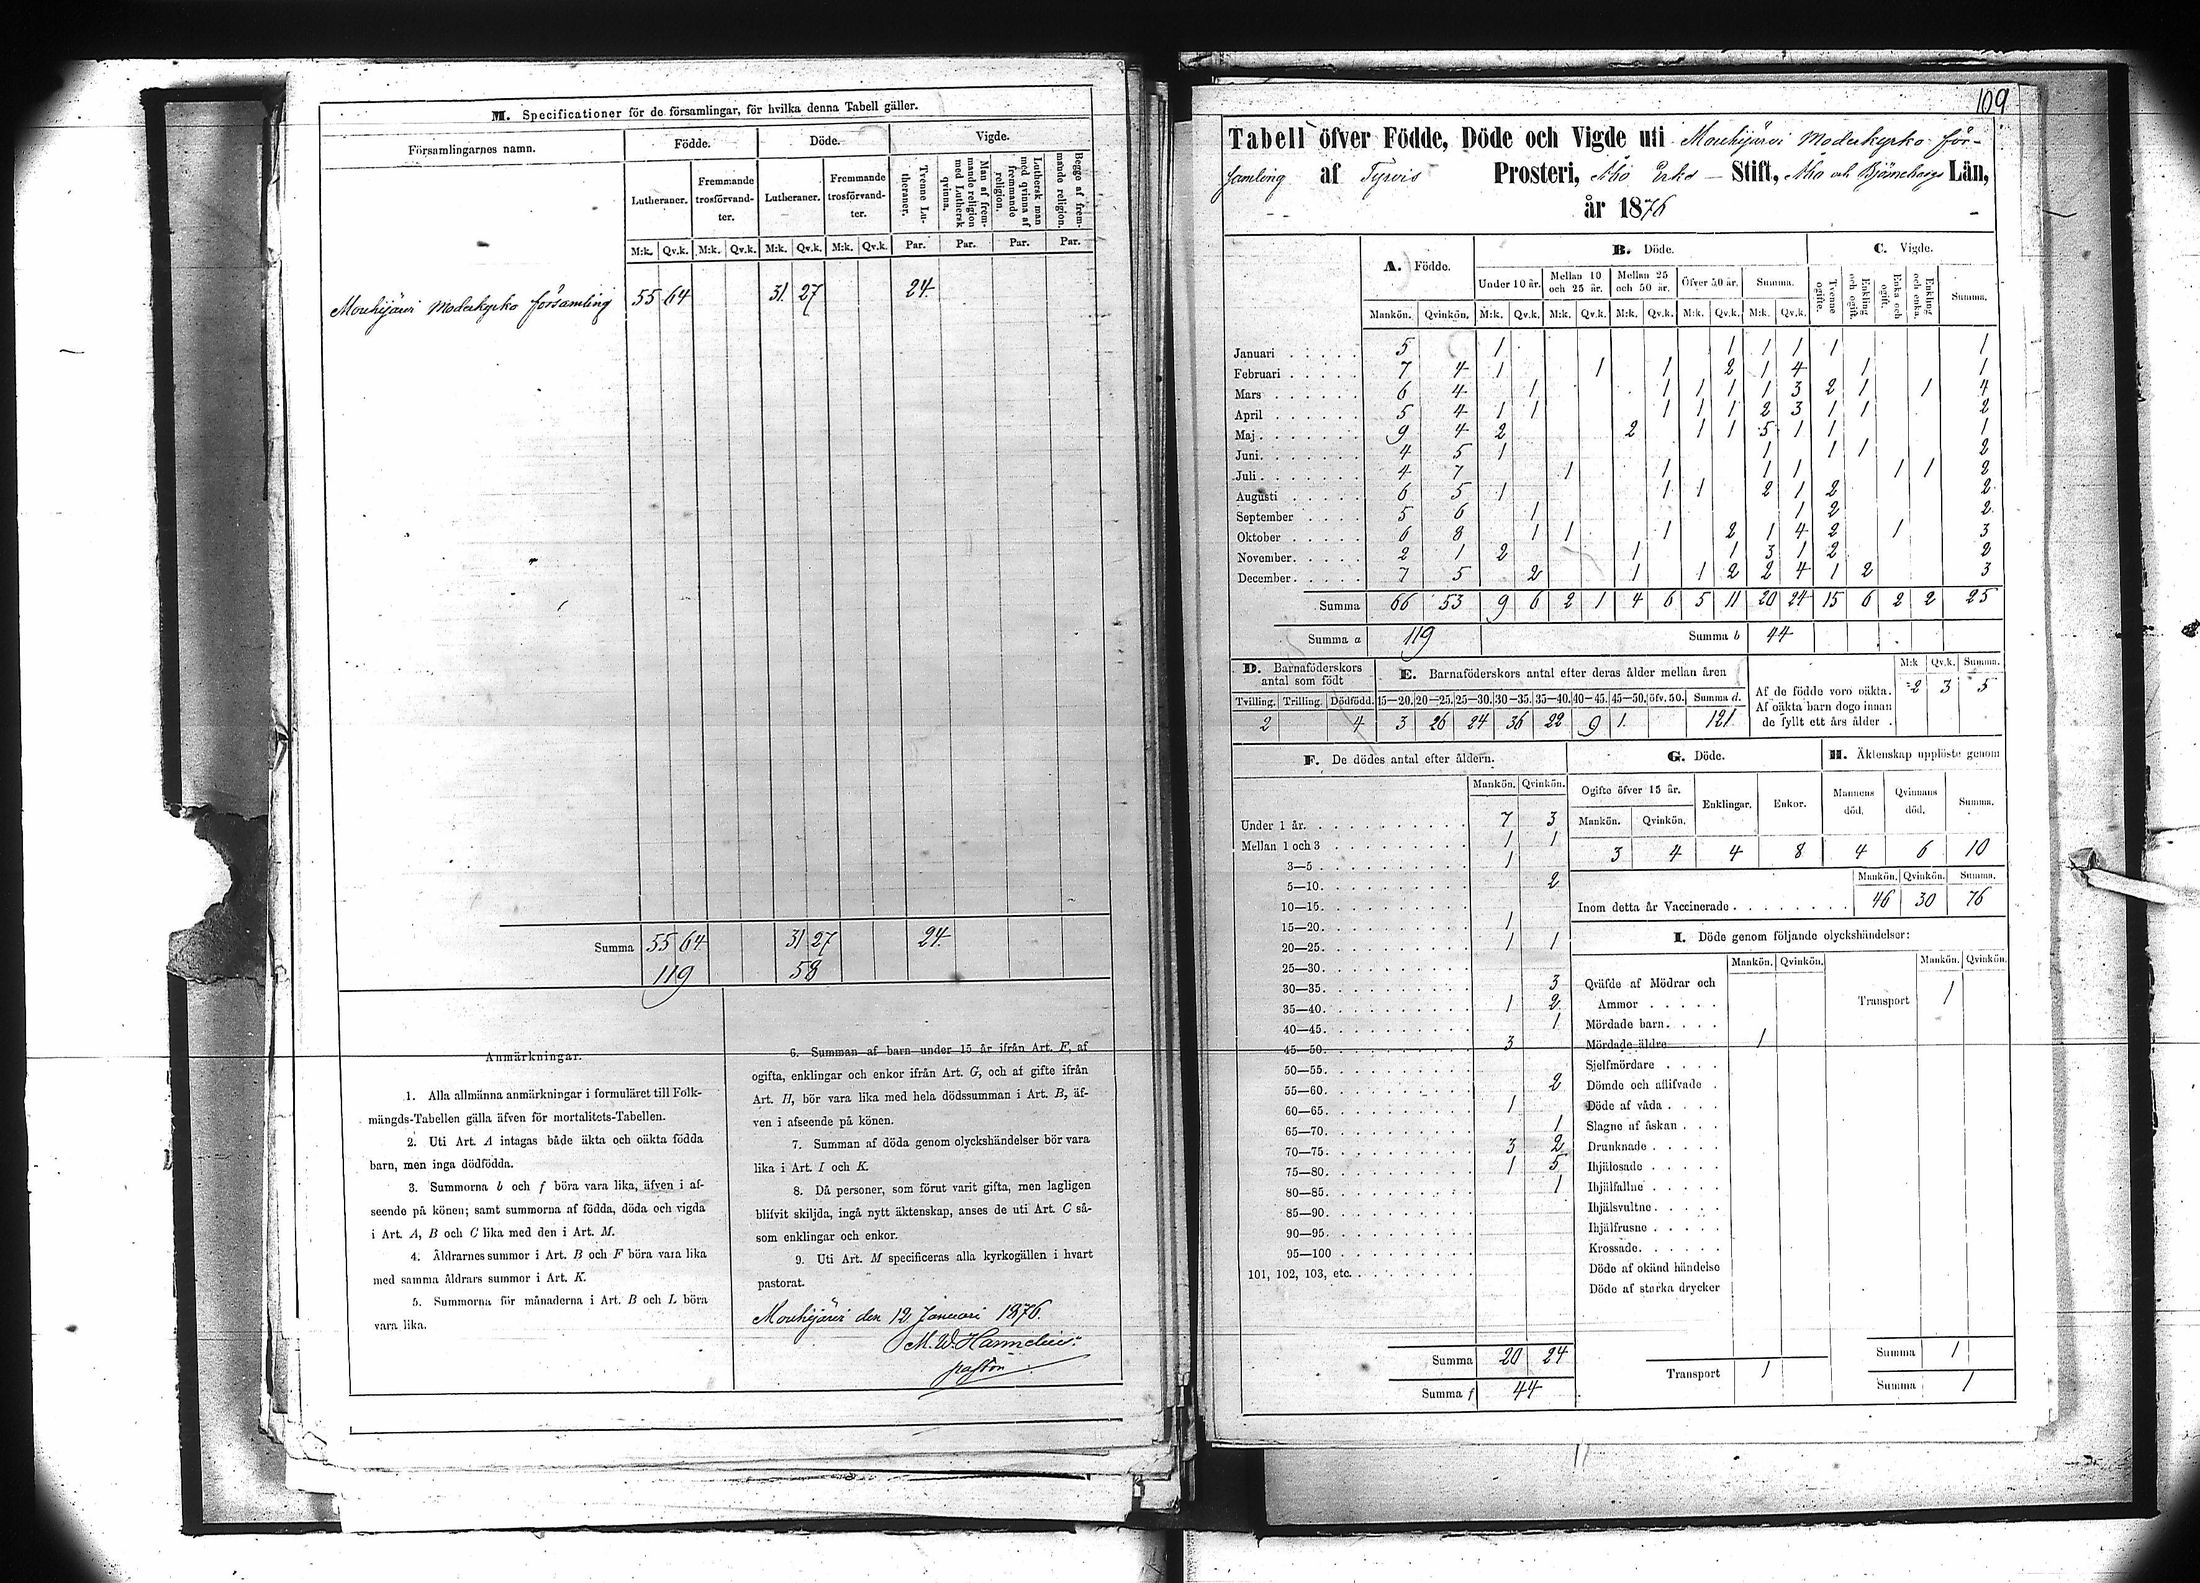 M. Specificationer för de församlingar, för hvilka denna Tabell gäller.
Församlingarnes namn. Födde. Döde. Vigde.
Lutheraner. Fremmande trosförvandter. Lutheraner. Fremmande trosförvandter. Tvenne Lutheraner. Man af fremmande religion med Luthersk qvinna. Luthersk man med qvinna af fremmande religion. Begge af fremmande religion.
M:k. Qv.k. M:k. Qv.k. M:k. Qv.k. M:k. Qv.k. Par. Par. Par. Par.
Mouhijärvi Moderkyrko församling 55 64 31 27 24
Summa 55 64 31 27 24
119 58
Anmärkningar.
1. Alla allmänna anmärkningar i formuläret till Folk-
mängds-Tabellen gälla äfven för mortalitets-Tabellen.
2. Uti Art. A intagas både äkta och oäkta födda
barn, men inga dödfödda.
3. Summorna b och f böra vara lika, äfven i af-
seende på könen; samt summorna af födda, döda och vigda
i Art. A, B och C lika med den i Art. M.
4. Åldrarnes summor i Art. B och F böra vara lika
med samma åldrars summor i Art. K.
5. Summorna för månaderna i Art. B och L böra
vara lika.
6. Summan af barn under 15 år ifrån Art. F, af
ogifta, enklingar och enkor ifrån Art. G, och af gifte ifrån
Art. H, bör vara lika med hela dödssumman i Art. B, äf-
ven i afseende på könen.
7. Summan af döda genom olyckshändelser bör vara
lika i Art. I och K.
8. Då personer, som förut varit gifta, men lagligen
blifvit skiljda, ingå nytt äktenskap, anses de uti Art. C så-
som enklingar och enkor.
9. Uti Art. M specificeras alla kyrkogällen i hvart
pastorat.
Mouhijärvi den 12 Januari 1876.
M. W. Hannelius
pastor
109
Tabell öfver Födde, Döde och Vigde uti Mouhijärvi Moderkyrko för-
samling af Tyrvis Prosteri, Åbo Erke Stift, Åbo och Björneborgs Län,
år 1876
A. Födde. B. Döde. C. Vigde.
Under 10 år. Mellan 10 och 25 år. Mellan 25 och 50 år. Öfver 50 år. Summa. Tvenne ogifte. Enkling och ogift. Enka och ogift. Enkling och enka. Summa.
Mankön. Qvinkön. M:k. Qv.k. M:k. Qv.k. M:k. Qv.k. M:k. Qv.k. M:k. Qv.k.
Januari 5 1 1 1 1 1 1
Februari 7 4 1 1 1 2 1 4 1 1
Mars 6 4 1 1 1 1 1 3 2 1 1 4
April 5 4 1 1 1 1 1 2 3 1 1 2
Maj 9 4 2 2 1 1 5 1 1 1
Juni 4 5 1 1 1 1 2
Juli 4 7 1 1 1 1 1 1 2
Augusti 6 5 1 1 1 2 1 2 2
September 5 6 1 1 2 2
Oktober 6 8 1 1 1 2 1 4 2 1 3
November 2 1 2 1 1 3 1 2 2
December 7 5 2 1 1 2 2 4 1 2 3
Summa 66 53 9 6 2 1 4 6 5 11 20 24 15 6 2 2 25
Summa a 119 Summa b 44
D. Barnaföderskors antal som födt E. Barnaföderskors antal efter deras ålder mellan åren M:k Qv.k. Summa.
Tvilling. Trilling. Dödfödd. 15—20. 20—25. 25—30. 30—35. 35—40. 40—45. 45—50. öfv. 50. Summa d.
2 4 3 26 24 36 22 9 1 121
Af de födde voro oäkta. 2 3 5
Af oäkta barn dogo innan
de fyllt ett års ålder
F. De dödes antal efter åldern.
Mankön. Qvinkön.
Under 1 år 7 3
Mellan 1 och 3 1 1
3—5 1
5—10 2
10—15
15—20 1
20—25 1 1
25—30
30—35 3
35—40 1 2
40—45 1
45—50 3
50—55
55—60 2
60—65 1
65—70 1
70—75 3 2
75—80 1 5
80—85 1
85—90
90—95
95—100
101, 102, 103, etc.
Summa 20 24
Summa f 44
G. Döde. H. Äktenskap upplöste genom
Ogifte öfver 15 år. Enklingar. Enkor. Mannens död. Qvinnans död. Summa.
Mankön. Qvinkön.
3 4 4 8 4 6 10
Mankön. Qvinkön. Summa.
Inom detta år Vaccinerade 46 30 76
I. Döde genom följande olyckshändelser:
Mankön. Qvinkön. Mankön. Qvinkön.
Qväfde af Mödrar och
Ammor
Mördade barn
Mördade äldre 1
Sjelfmördare
Dömde och aflifvade
Döde af våda
Slagne af åskan
Drunknade
Ihjälosade
Ihjälfallne
Ihjälsvultne
Ihjälfrusne
Krossade
Döde af okänd händelse
Döde af starka drycker
Transport 1
Transport 1
Summa 1
Summa 1